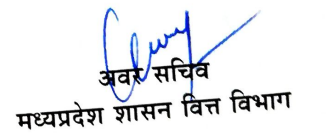 अवर सचिव
मध्यप्रदेश शासन वित्त विभाग